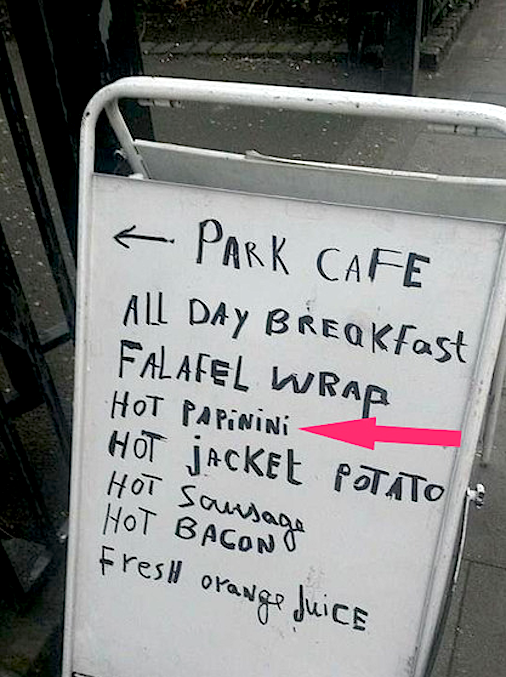 ← PARK CAFE
ALL DAY BREAKFast
FALAFEL WRAP
HOT PAPiNiNi
HOT jACKEt POTATO
HOT Sousage
HOT BACON
FresH orange juiCE